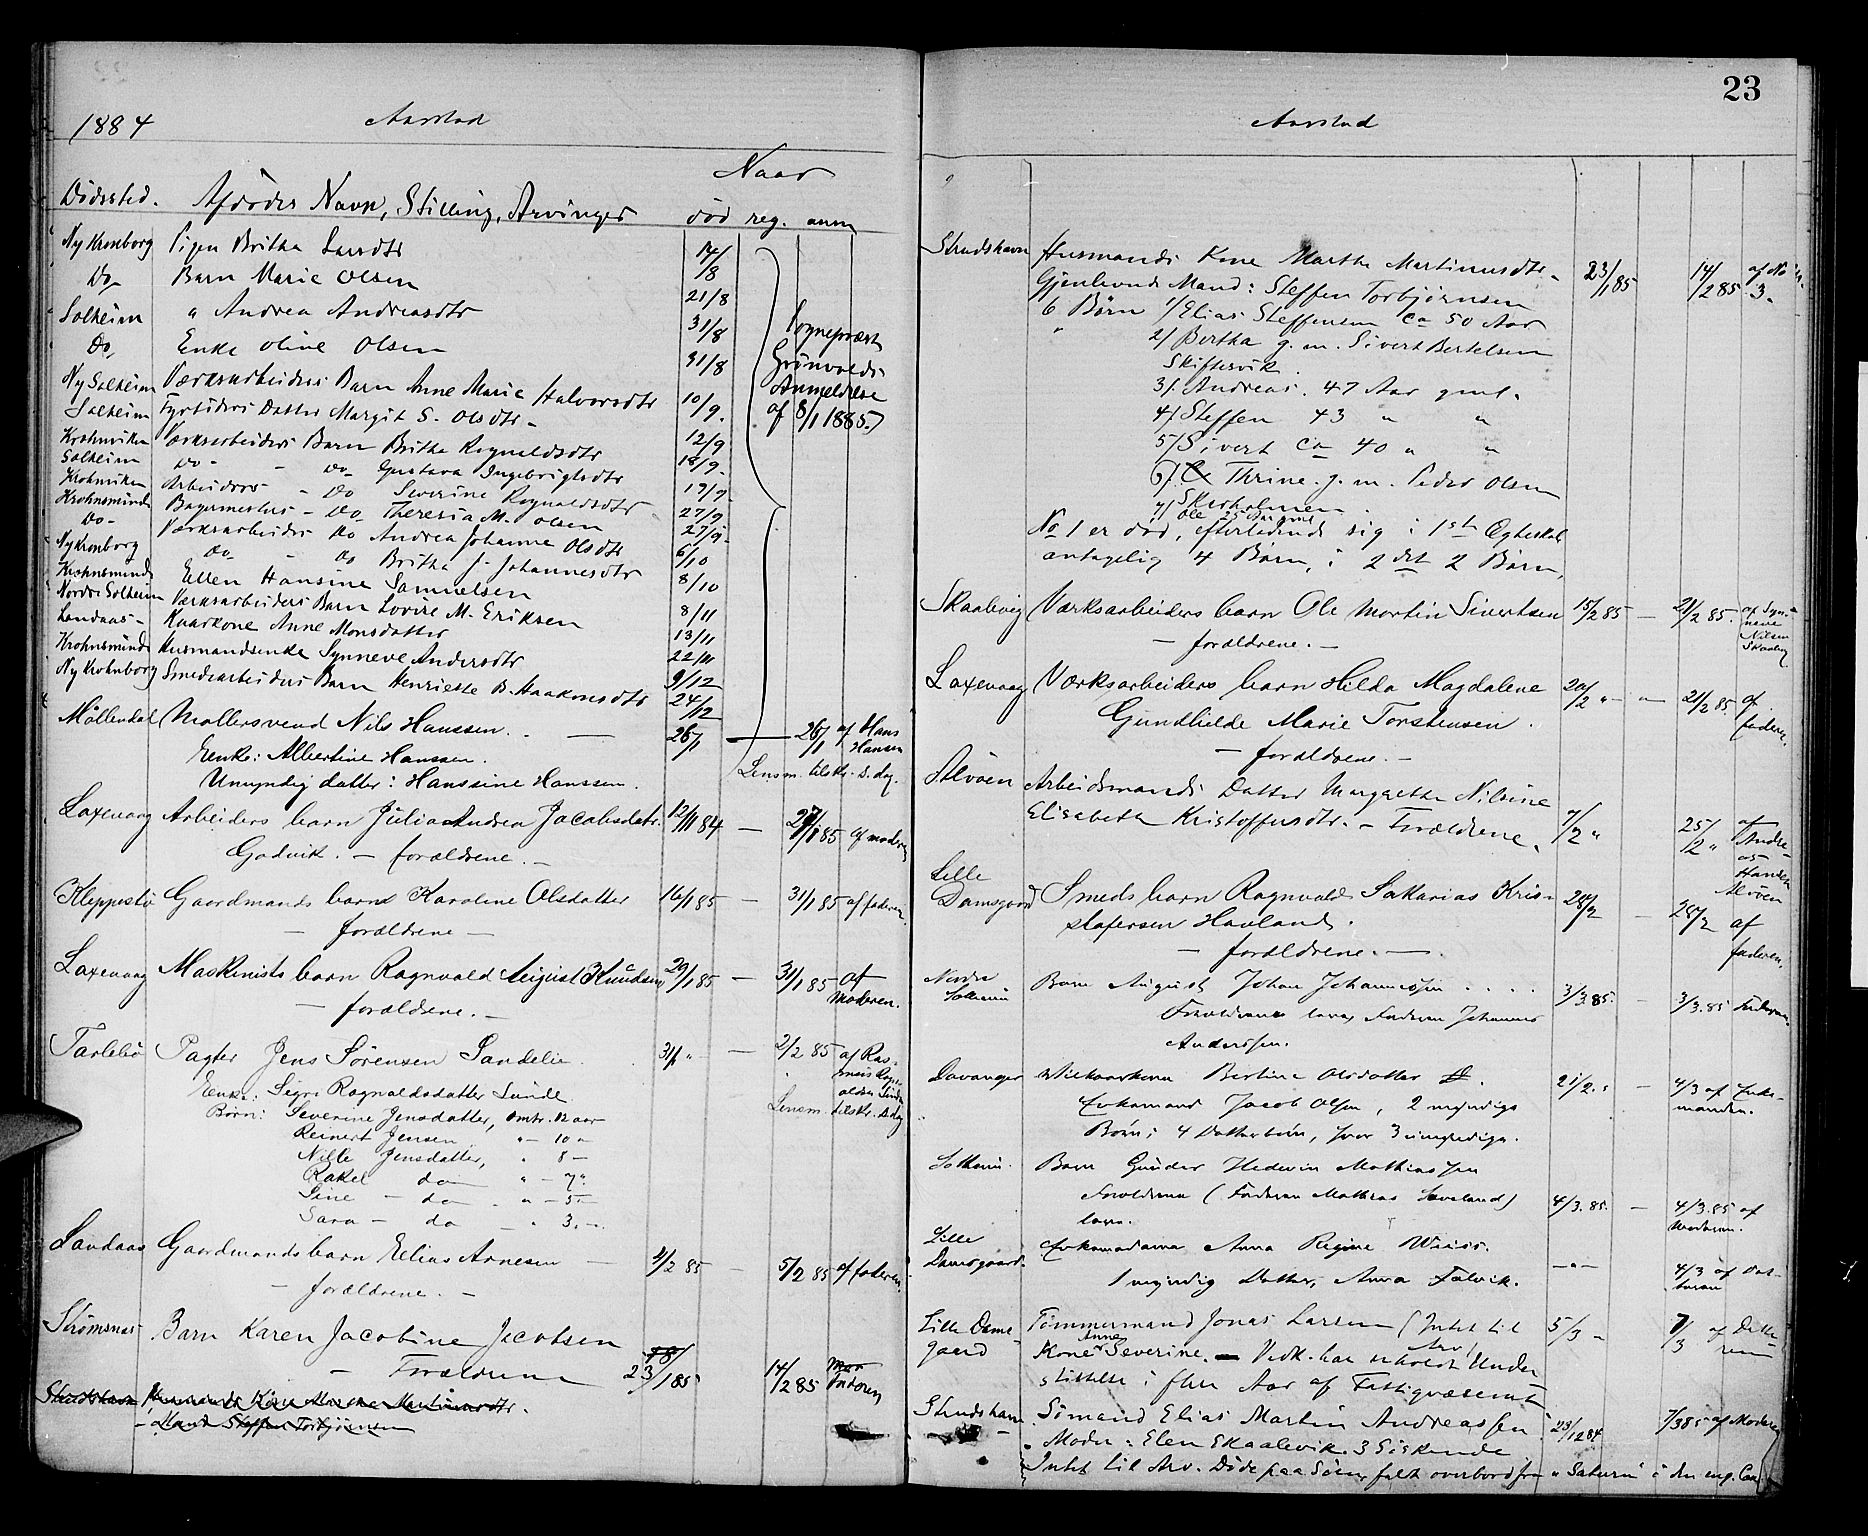 1884 Aarstad
Naar
Dødssted. Afdødes Navn, Stilling, Arvinger død reg. anm
Ny Kronborg Pigen Britha Larsdtr 14/8
Do Barn Marie Olsen 21/8
Solheim " Andrea Andreasdtr 31/8
Do, Enke Oline Olsen 31/8
Sognepræst
Grönvolds
Anmeldelse
af 8/1 1885.
Ny Solheim Værksarbeiders Barn Anne Marie Halvorsdtr 10/9.
Solheim Fyrbøders Datter Margit S. Olsdtr - 12/9
Krohnviken Værksarbeiders Barn Britha Rognaldsdtr 18/9.
Solheim Do - Do Gustava Ingebrigtsdtr 19/9
Krohnviken Arbeiders - Do Severine Rognaldsdtr 27/9
Krohnsminde Bagermesters - Do Theresia M. Olsen 27/9.
Do - Værksarbeiders Do Andrea Johanne Olsdtr 6/10
Ny Kronborg Do - Do Britha J. Johannesdtr 8/10
Krohnsminde Ellen Hansine Samuelsen 8/11
Nordre Solheim Værksarbeiders Barn Lovise M. Eriksen 13/11
Landaas - Kaarkone Anne Monsdatter 22/11
Krohnsminde Husmandsenke Synneve Andersdtr 9/12
Ny Krohnborg Smedearbeiders Barn Henriette B. Haakonsdtr 24/12
Möllendal Møllersvend Nils Hanssen. 26/1 — 26/1 af Hans Hansen
Enke: Albertine Hanssen.
Umyndig datter: Hanssine Hanssen. Lensm. tilskr. s. dag.
Laxevaag Arbeiders barn Julia Andrea Jacobsdatr. 12/11 84 — 27/1 85 af moderen
Godvik. — forældrene. —
Kleppestö Gaardmands barn Karoline Olsdatter 16/1 85 — 31/1 85 af faderen
— forældrene —
Laxevaag Maskinists barn Ragnvald August Knudsen 29/1 85 — 31/1 85 af Moderen.
— forældrene. —
Tarlebö Pagter Jens Sörensen Sandelie. 31/1 " — 2/2 85 af Ras-
Enke: Sigri Ragnaldsdatter Sunde
Børn: Severine Jensdatter, omtr. 12 aar Lensm. tilskr. s. dag
Reinert Jensen " - 10 "
Nille Jensdatter, " 8 —
Rakel do " - 7 "
Sine - do " - 5 -
Sara - do - " 3. -
Landaas Gaardmands barn Elias Arnesen — 4/2 85 — 5/2 85 af faderen.
— forældrene. —
Strømsnes Barn Karen Jacobine Jacobsen
— Forældrene 23/1 85 14/2 85 Faderen
Strudshavn Husmands Kone Marthe Martinusdtr.
- Mand Steffen Torbjörnsen
23
Aarstad
Strudshavn Husmands Kone Marthe Martinusdtr - 23/1 85 14/2 85 af No 3.
Gjenlevende Mand: Steffen Torbjørnsen
6 Børn 1/ Elias Steffensen ca 50 Aar
2/ Bertha g. m. Sivert Bertelsen
Skiftesvik.
3/. Andreas. 47 Aar gml.
4/ Steffen 43 " "
5/ Sivert ca 40 " "
6/. Thrine. g. m. Peder Olsen
Skarholmen.
7/ Ole 25 Aar gml
No 1 er død, efterladende sig i 1ste Egteskab
antagelig 4 Børn, i 2det 2 Børn,
Skaalvig Værksarbeiders barn Ole Martin Sivertsen 15/2 85 — 21/2 85. af Syn-
neve
Nilsen
Skaalvig
— forældrene. —
Laxevaag Værksarbeiders barn Hilda Magdalene 20/2 " — " — 21/2 85. af
faderen.
Gundhilde Marie Torstensen.
— forældrene. —
Alvøen Arbeidsmands Datter Margrethe Nilsine
Elisabeth Kristoffersdtr. - Forældrene. 7/2 " 25/2 " af
Andre-
as
Hansen
Alvöen
Lille
Damsgaard Smeds barn Ragnvald Sakarias Kris- 28/2 — 28/2 af
stofersen Havland.
— forældrene. — faderen.
Nordre
Solheim Barn August Johan Johannessen . . . . 3/3.85. — 3/3.85 Faderen.
Forældrene lever, Faderen Johannes
Anderssen.
Davanger Vilkaarskone Bertine Olsdatter 21/2. " — 4/3 af Enke-
manden.
Enkemand Jacob Olsen, 2 myndige
Børn; 4 Datterbørn, hvor 3 umyndige.
Solheim. Barn Gunder Hedevin Mathiassen
Forældrene (Faderen Mathias Løveland) 4/3.85. — 4/3.85 af
Moderen.
lever.
Lille
Damsgaard. Enkemadame Anna Regine Weiss. — " — 4/3 af Dat-
teren
1 myndig Datter, Anna Falvik.
Lille Dams-
gaard Tømmermand Jonas Larsen (Intet til 5/3 " 7/3 af Datte
ren
Arv)
Kone Anne Severine. — Vedk. har erholdt Under
støttelse i flere Aar af Fattigvæsenet
Strudshavn Sømand Elias Martin Andreassen 23/12 84 7/3 85 af Moderen
Moder: Elen Skaalevik. 3 Søskende
Intet til Arv. Døde paa Søen, falt overbord fra "Saturn" i den eng. Can